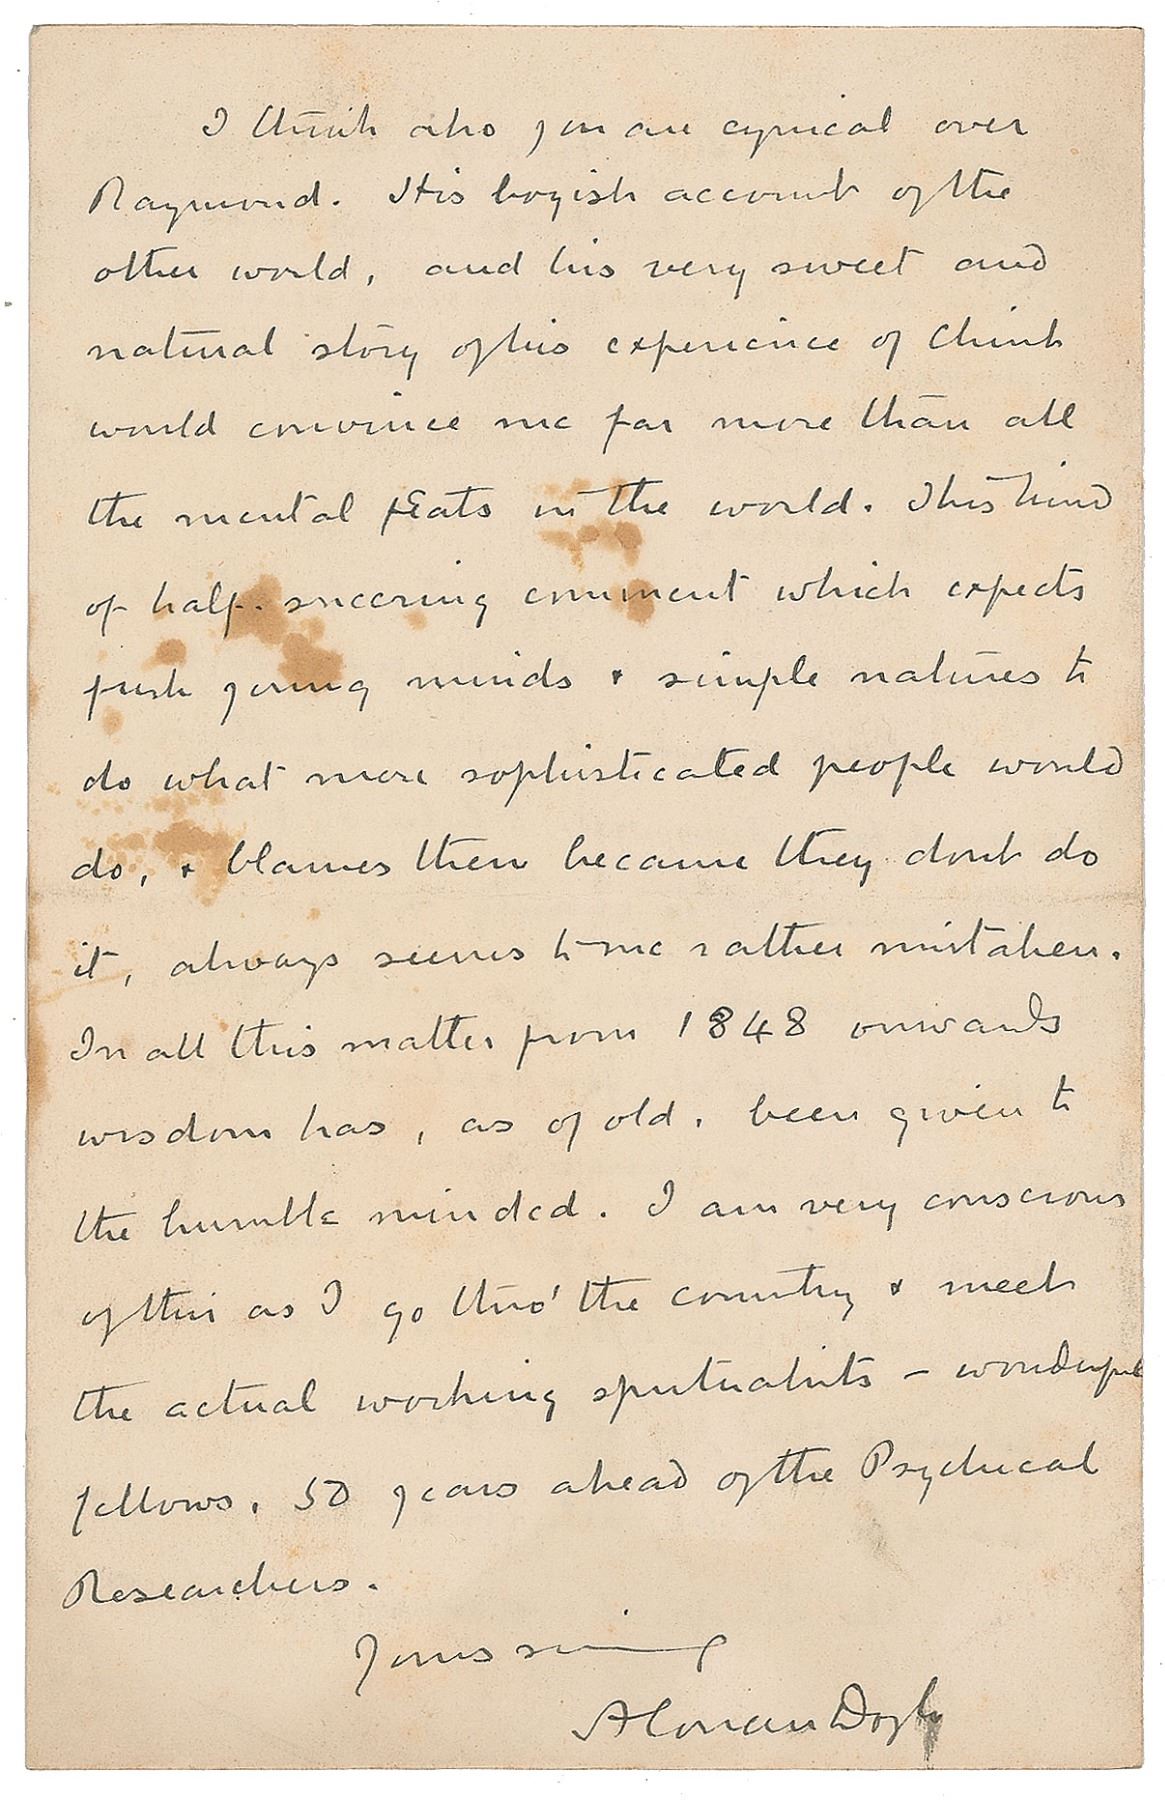 I think also you are cynical over
Raymond. His boyish account of the
other world, and his very sweet and
natural story of his experience of Christ
would convince me far more than all
the mental feats in the world. This kind
of half-sneering comment which expects
fresh young minds & simple natures to
do what more sophisticated people would
do, & blames them because they dont do
it, always seems to me rather mistaken.
In all this matter from 1848 onwards
wisdom has, as of old, been given to
the humble minded. I am very conscious
of this as I go thro' the country & meet
the actual working spiritualists - wonderful
fellows, 50 years ahead of the Psychical
Researchers.
Yours sincerely
A Conan Doyle